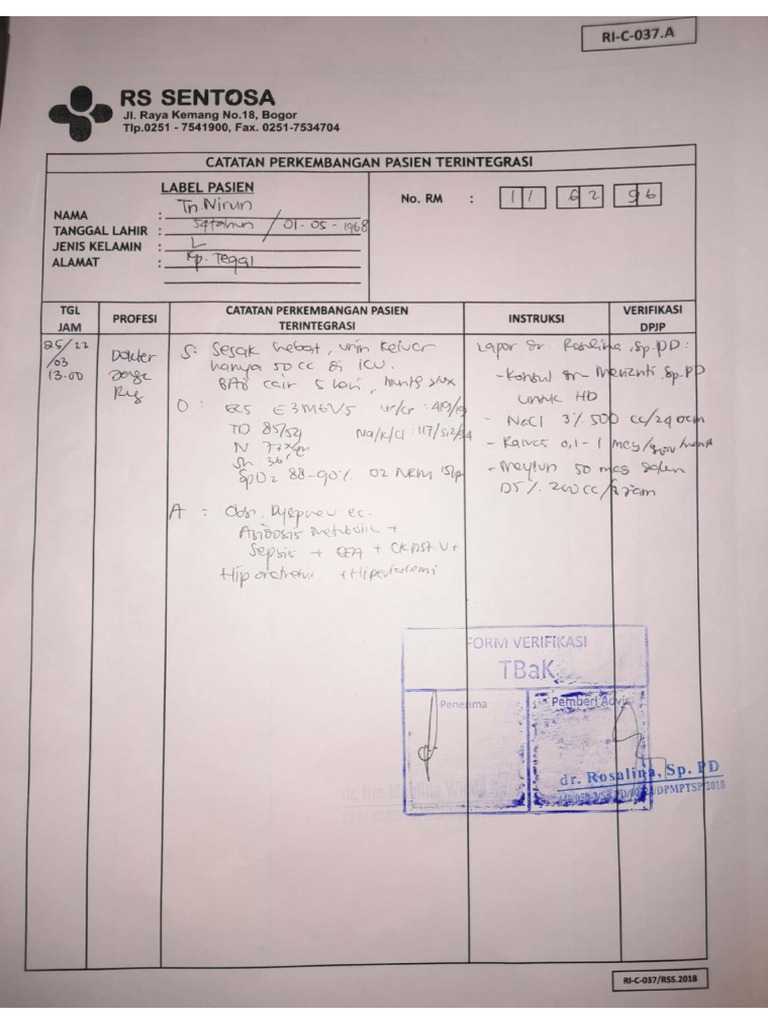 RI-C-037.A
RS SENTOSA
Jl. Raya Kemang No.18, Bogor
Tlp.0251 - 7541900, Fax. 0251-7534704
CATATAN PERKEMBANGAN PASIEN TERINTEGRASI
LABEL PASIEN
NAMA :
TANGGAL LAHIR : 54 tahun / 01-05-1968
JENIS KELAMIN : L
ALAMAT : Kp. Tegal
No. RM : 11 62 96
TGL JAM
PROFESI
CATATAN PERKEMBANGAN PASIEN TERINTEGRASI
INSTRUKSI
VERIFIKASI DPJP
25/22
/03
13.00
Dokter
Jaga
S: Sesak hebat, urin keluar
hanya 50 cc di ICU.
BAB cair 5 hari,
O: E3M6V5 ur/cr:
TD 85/52 Na/K/Cl: 117/5.2/
N
Sh 36
SpO2 88-90% O2 NRM 15lp
A : Obs. Dyspneu ec.
Asidosis metabolik +
Sepsis + + CKD st. V +
Hiponatremi + Hiperkalemi
Lapor dr. Rosalina, Sp.PD:
- Konsul dr Sp.PD
untuk HD
- NaCl 3% 500 cc/24 jam
- 0,1-1
- 50 dalam
D5% 200 cc/
FORM VERIFIKASI
TBaK
Penerima
Pemberi Advis
dr. Rosalina, Sp. PD
RI-C-037/RSS.2018